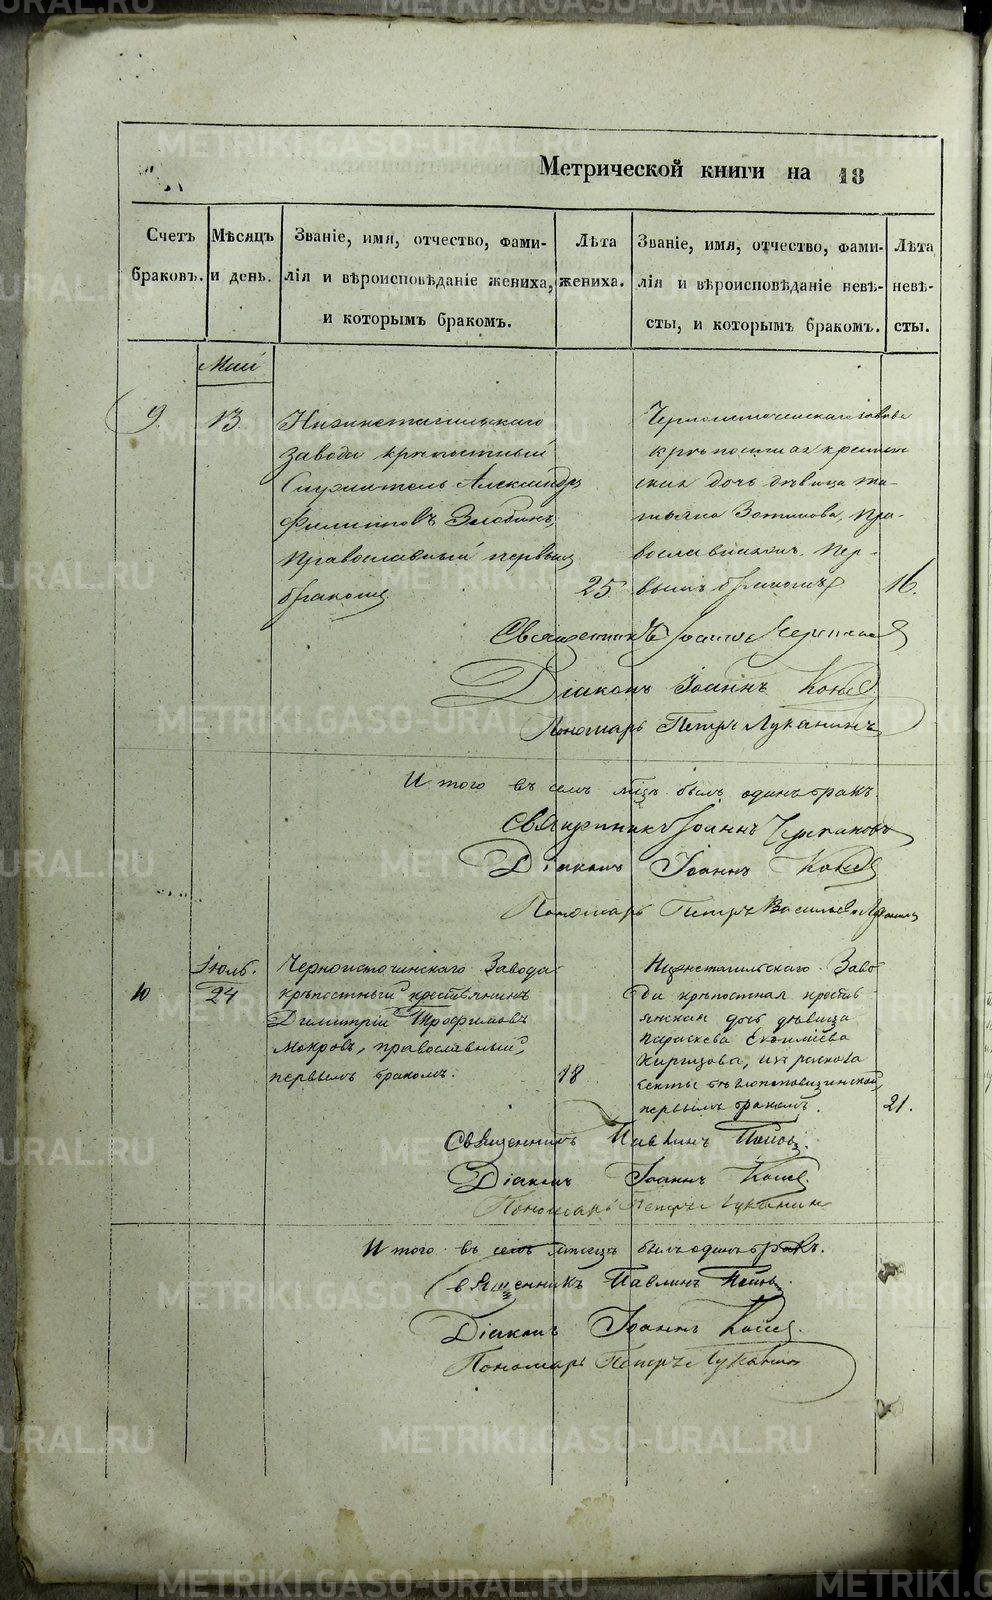 Метрической книги на 18
Счетъ браковъ.
Мѣсяцъ и день.
Званіе, имя, отчество, фами-
лія и вѣроисповѣданіе жениха,
и которымъ бракомъ.
Лѣта жениха.
Званіе, имя, отчество, фами-
лія и вѣроисповѣданіе невѣ-
сты, и которымъ бракомъ.
Лѣта невѣ-
сты.
Маій
9.
13
Нижнетагильскаго
завода крѣпостный
Служитель Александръ
Филиповъ Злобинъ,
православный первым
бракомъ
25
Черноисточинскаго завода
крѣпостная крестьян
ская дочь дѣвица Та-
тьяна Зотикова, пра-
вославная пер-
вымъ бракомъ
16.
Священникъ Іоаннъ
Діаконъ Іоаннъ
Пономарь Петръ Луканинъ
Итого въ семъ мѣцѣ былъ одинъ бракъ
Священникъ Іоаннъ
Діаконъ Іоаннъ
Пономарь Петръ Васильевъ
Іюль.
10
24
Черноисточинскаго Завода
крѣпостный крестьянинъ
Димитрій Трофимовъ
Мокровъ, православный,
первымъ бракомъ.
18
Нижнетагильскаго Заво
да крѣпостная крестья
янская дочь дѣвица
Параскева
Киргизова, изъ раскола
секты бѣглопоповщинской,
первымъ бракомъ.
21.
Священникъ Павлинъ
Діаконъ Іоаннъ
Пономарь Петръ Луканин
Итого въ семъ мѣсяцѣ былъ одинъ бракъ.
Священникъ Павлинъ
Діаконъ Іоаннъ
Пономарь Петръ Луканин
METRIKI.GASO-URAL.RU